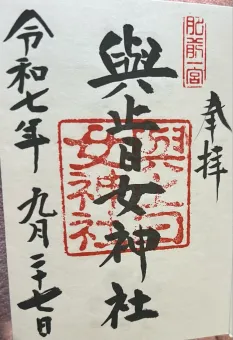 肥前一宮
奉拝
與止日女神社
與止日女神社
令和七年 九月二十七日